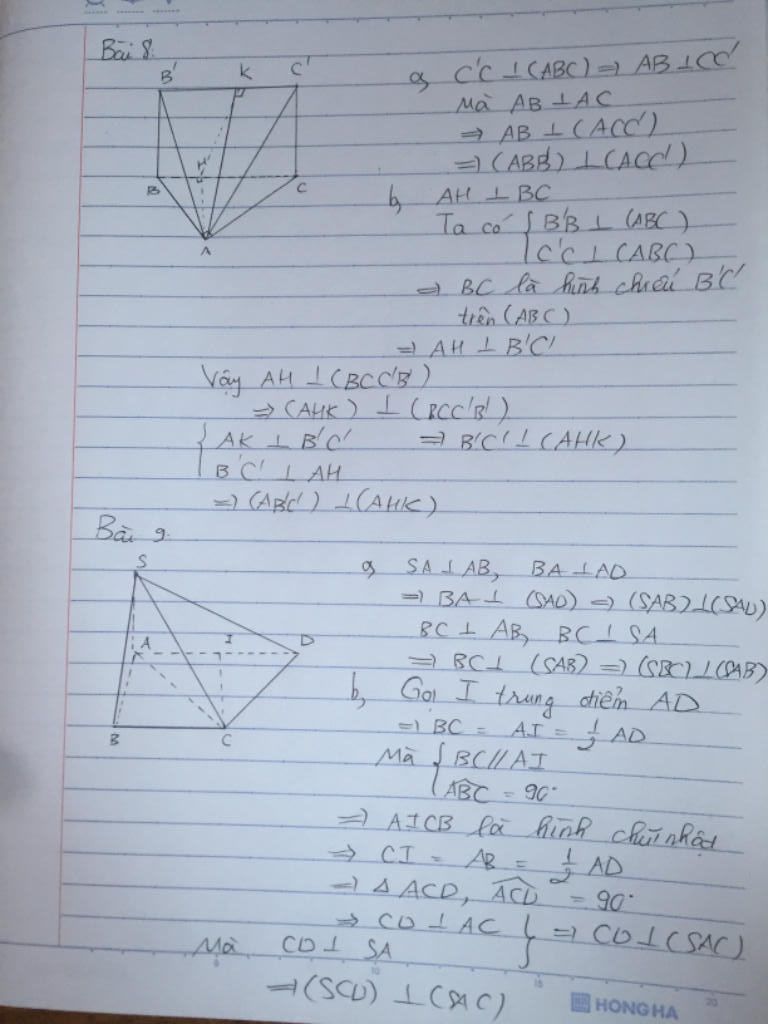 Bài 8.
B' K C'
H
B C
A
a, C'C ⊥ (ABC) ⇒ AB ⊥ CC'
Mà AB ⊥ AC
⇒ AB ⊥ (ACC')
⇒ (ABB') ⊥ (ACC')
b, AH ⊥ BC
Ta có { B'B ⊥ (ABC)
C'C ⊥ (ABC)
⇒ BC là hình chiếu B'C'
trên (ABC)
⇒ AH ⊥ B'C'
Vậy AH ⊥ (BCC'B')
⇒ (AHK) ⊥ (BCC'B')
{ AK ⊥ B'C' ⇒ B'C' ⊥ (AHK)
B'C' ⊥ AH
⇒ (AB'C') ⊥ (AHK)
Bài 9.
S
A I D
B C
a, SA ⊥ AB, BA ⊥ AD
⇒ BA ⊥ (SAD) ⇒ (SAB) ⊥ (SAD)
BC ⊥ AB, BC ⊥ SA
⇒ BC ⊥ (SAB) ⇒ (SBC) ⊥ (SAB)
b, Gọi I trung điểm AD
⇒ BC = AI = 1/2 AD
Mà { BC // AI
ABC = 90°
⇒ AICB là hình chữ nhật
⇒ CI = AB = 1/2 AD
⇒ Δ ACD, ACD = 90°
⇒ CD ⊥ AC } ⇒ CD ⊥ (SAC)
Mà CD ⊥ SA
⇒ (SCD) ⊥ (SAC)
5 10 15 20
HONG HA